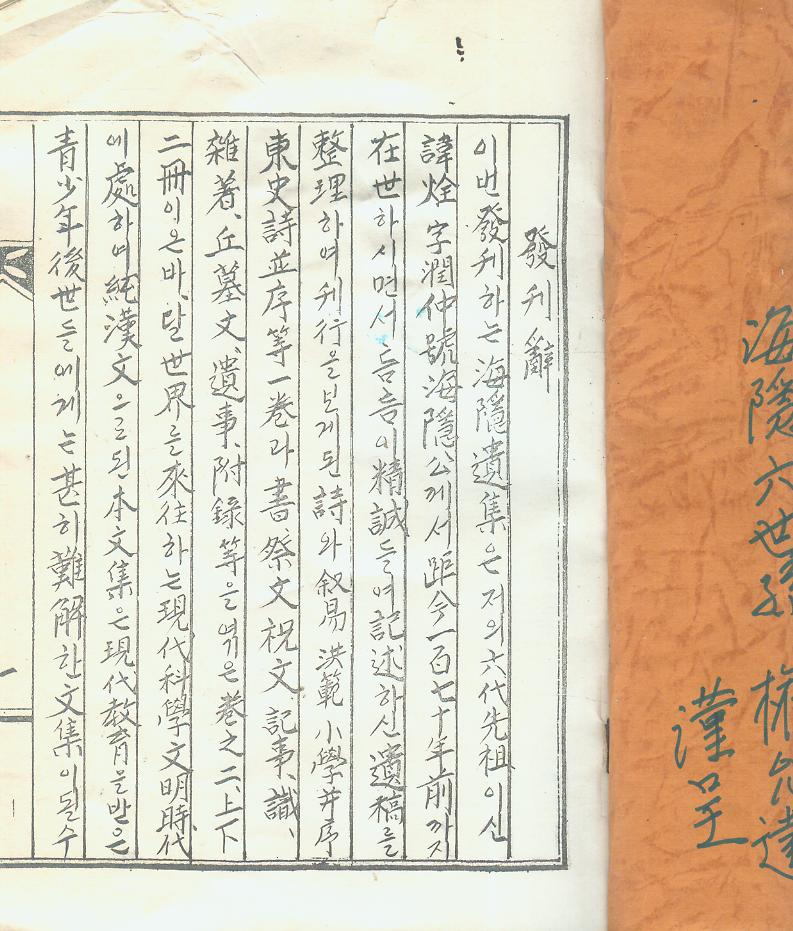 海隱六世孫 權 達
謹呈
發刊辭
이번 發刊하는 海隱遺集은 저의 六代先祖이신
諱烇 字潤仲 號海隱公께서 距今 一百七十年前까지
在世하시면서 틈틈이 精誠들여 記述하신 遺稿를
整理하여 刊行을 보게된 詩와 叙易 洪範 小學并序
東史詩並序等 一卷과 書、祭文 祝文 記事、識、
雜著、丘墓文、遺事、附錄等을 엮은 卷之二、上下
二冊이온바、달世界를 來往하는 現代科學文明時代
에 處하여 純漢文으로된 本文集은 現代敎育을 받은
靑少年後世들에게는 甚히 難解한 文集이될수